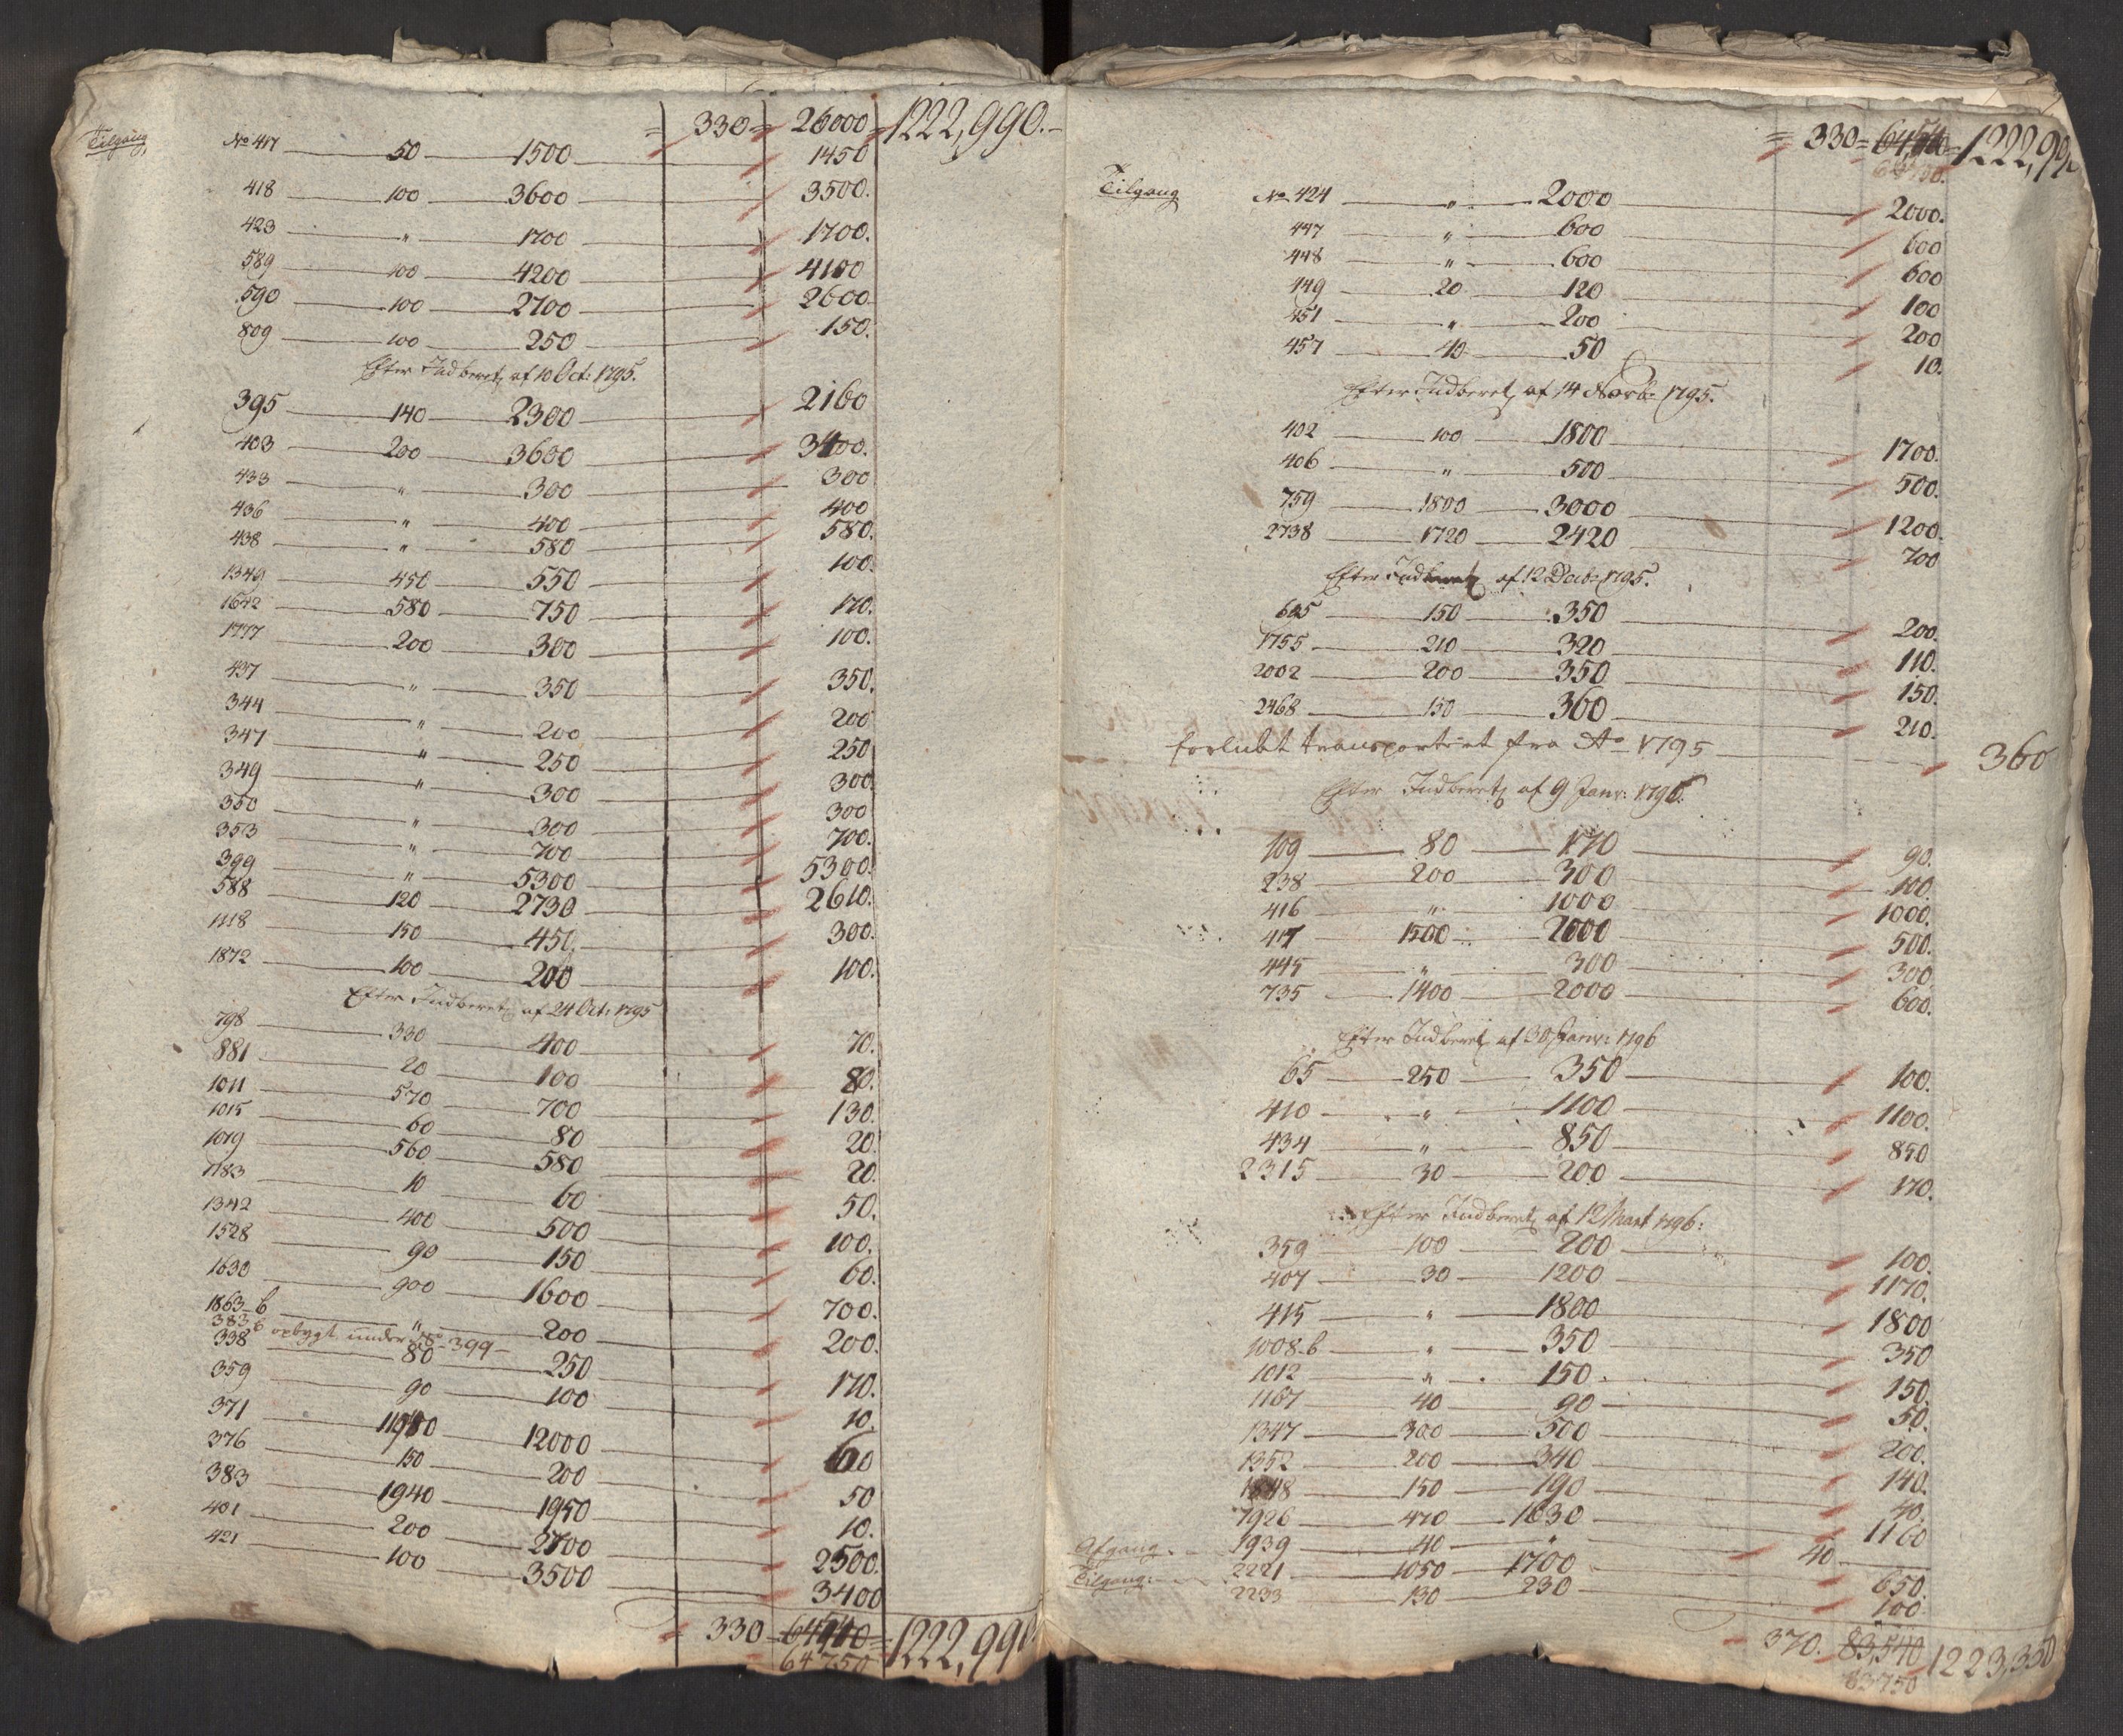 330 = 26000 = 1222,990.-
Tilgang No 417 50 1500 1450
418 100 3600 3500.
423 " 1700 1700.
589 100 4200 4100
590 100 2700 2600
809 100 250 150.
Efter Indberet; af 10 Oct: 1795.
395 140 2300 2160
403 200 3600 3400.
433 " 300 300
436 " 400 400
438 " 580 580.
1349 450 550 100.
1642 580 750 170.
1777 200 300 100.
437 " 350 350.
344 " 200 200
347 " 250 250
349 " 300 300.
350 " 300 300
353 " 700 700.
399 " 5300 5300.
588 120 2730 2610.
1118 150 450. 300.
1872 100 200 100.
Efter Indberet; af 24 Oct: 1795
798 330 400 70.
881 20 100 80.
1011 570 700 130.
1015 60 80 20.
1019 560 580 20.
1183 10 60 50.
1342 400 500 100.
1528 90 150 60.
1630 900 1600 700.
1863_b " 200 200.
383 b opbygt under No 399
338 80 250 170.
359 90 100 10.
371 11940 12000 60
376 150 200 50
383 1940 1950 10.
401 200 2700 2500.
421 100 3500 3400
330 = 64,540 = 1222,990.
64750
= 330 = 64,540 = 1222,990
64750.
Tilgang No 424 " 2000 2000.
447 " 600 600
448 " 600 600
449 20 120 100
451 " 200 200
457 40 50 10.
Efter Indberet; af 14 Novb: 1795.
402 100 1800 1700.
406 " 500 500.
759 1800 3000 1200.
2738 1720 2420 700
Efter Indberet; af 12 Decb: 1795.
695 150 350 200.
1755 210 320 110.
2002 200 350 150.
2468 150 360 210.
forlubt transporteret fra Ao 1795 360
Efter Indberet; af 9 Janr: 1796.
109 80 170 90.
238 200 300 100.
416 " 1000 1000.
417 1500 2000 500.
445 " 300 300.
735 1400 2000 600.
Efter Indberet; af 30 Janr: 1796
65 250 350 100.
410 " 1100 1100.
434 " 850 850
2315 30 200 170.
Efter Indberet; af 12 Mart 1796:
359 100 200 100.
407 30 1200 1170.
415 " 1800 1800
1008_b " 350 350
1012 " 150 150.
1167 40 90 50.
1347 300 500 200.
1352 200 340 140.
150 190 40.
1926 470 1630 1160
Afgang 1939 40 " 40
Tilgang: 2221 1050 1700 650.
2233 130 230 100
370. 83,540 1223,350
83750